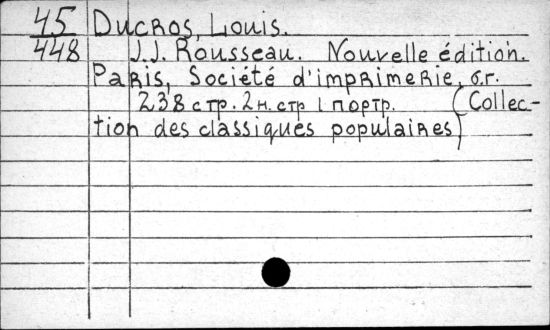 45 Ducros, Louis.
448 J.J. Rousseau. Nouvelle édition.
Paris, Société d'imprimerie, б.г.
238 стр. 2 н. стр 1 портр. (Collec-
tion des classiques populaires)